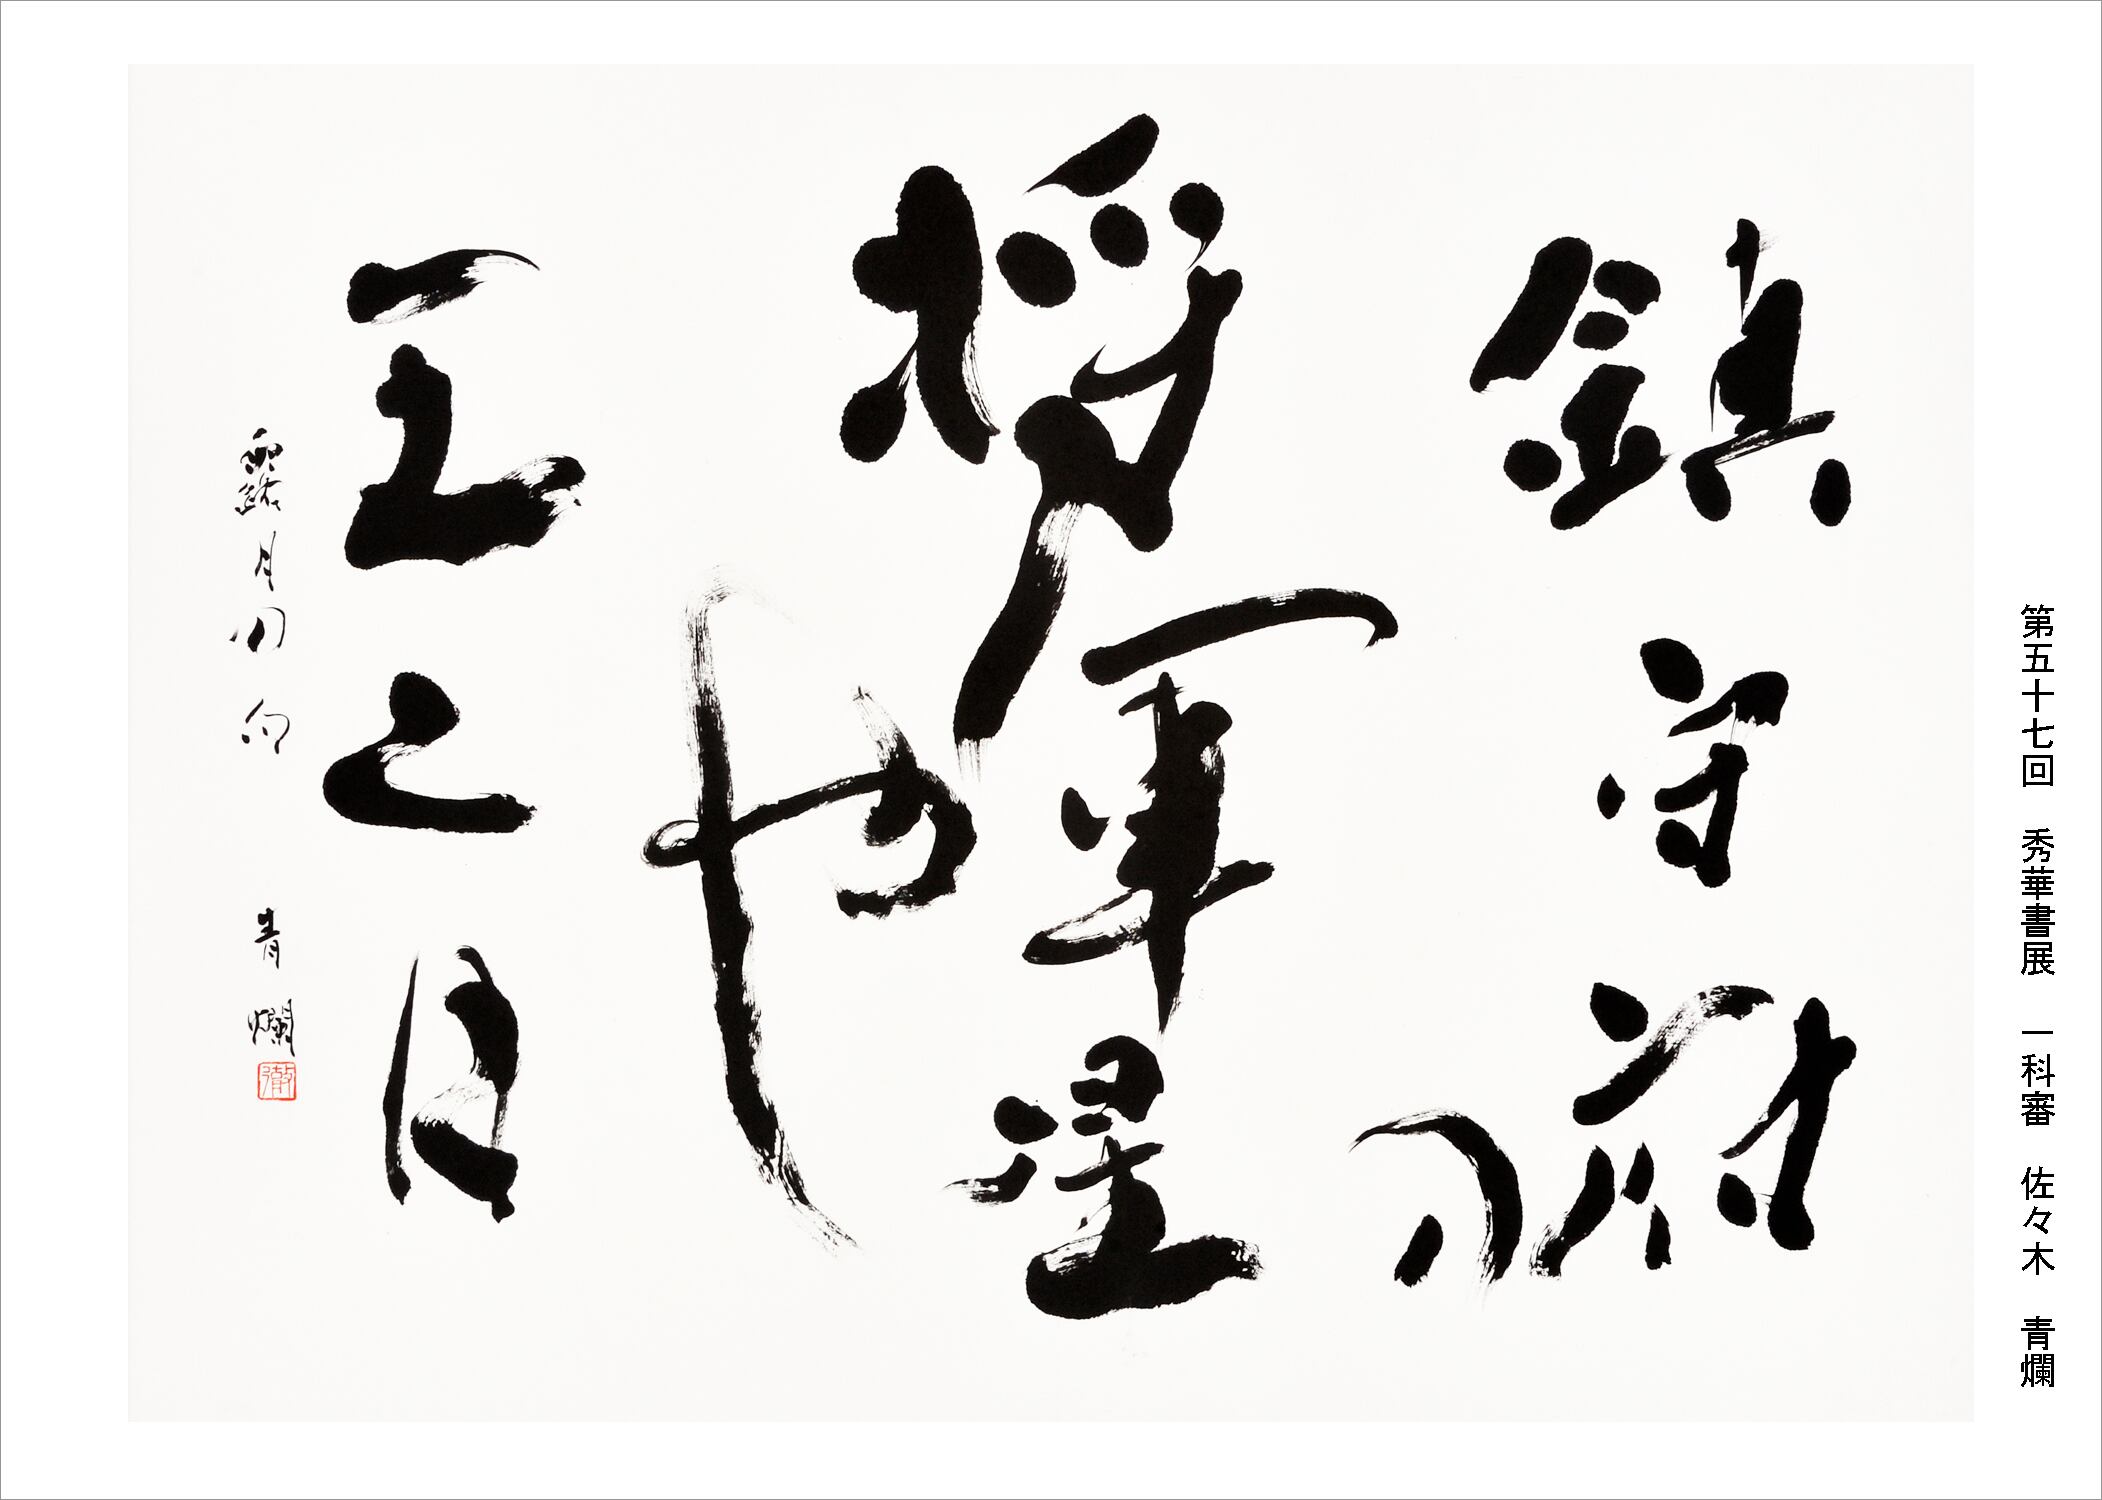 第五十七回　秀華書展　一科審　佐々木　青爛
鎮守府
の
将軍星
や
露月の句　青爛